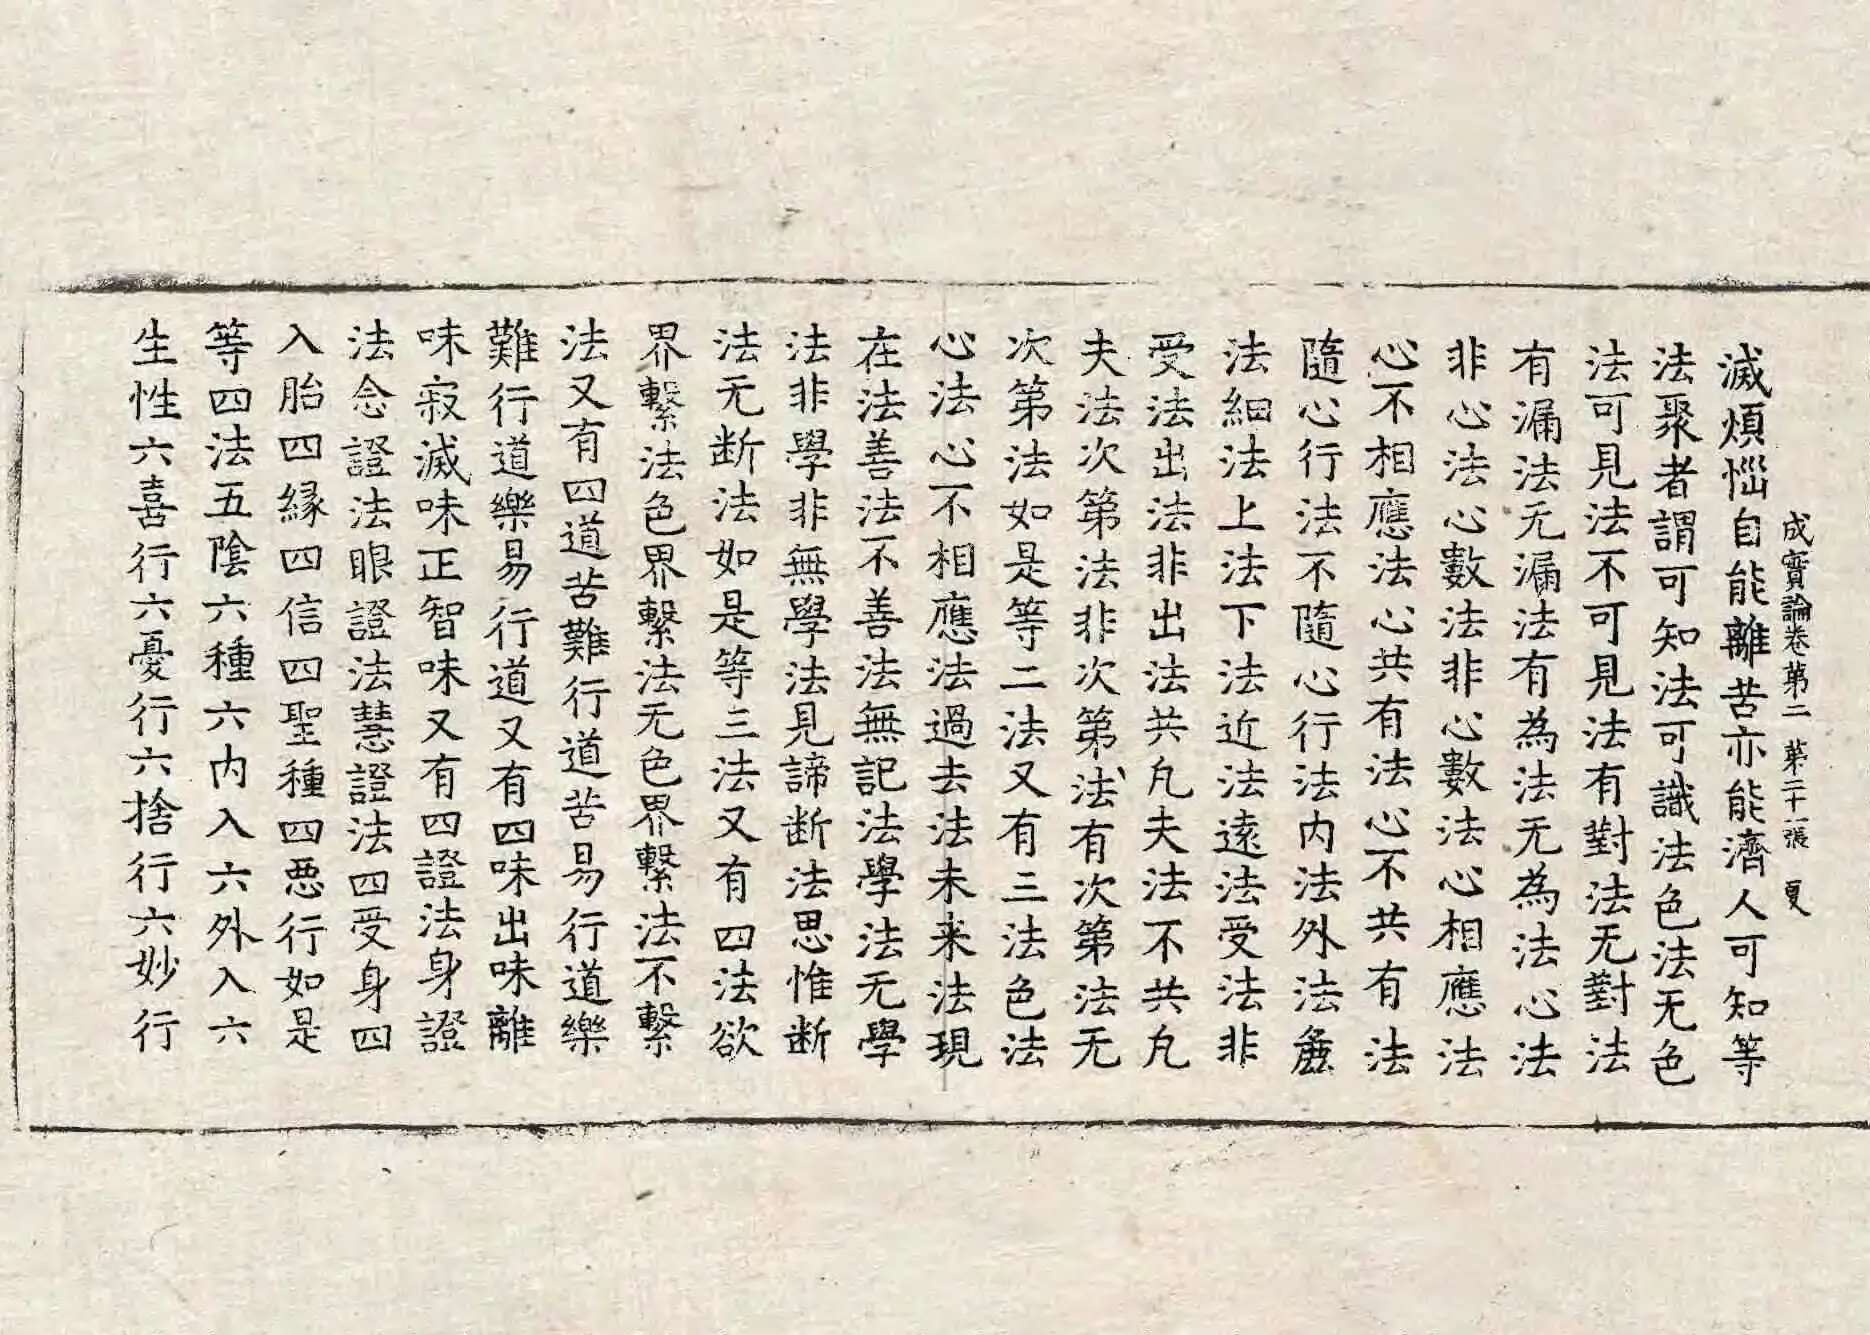 成實論卷第二　第二十一張　夏
滅煩惱自能離苦亦能濟人可知等
法聚者謂可知法可識法色法无色
法可見法不可見法有對法无對法
有漏法无漏法有為法无為法心法
非心法心數法非心數法心相應法
心不相應法心共有法心不共有法
隨心行法不隨心行法内法外法麁
法細法上法下法近法遠法受法非
受法出法非出法共凡夫法不共凡
夫法次第法非次第法有次第法无
次第法如是等二法又有三法色法
心法心不相應法過去法未来法現
在法善法不善法無記法學法无學
法非學非無學法見諦断法思惟断
法无断法如是等三法又有四法欲
界繫法色界繫法无色界繫法不繫
法又有四道苦難行道苦易行道樂
難行道樂易行道又有四味出味離
味寂滅味正智味又有四證法身證
法念證法眼證法慧證法四受身四
入胎四緣四信四聖種四惡行如是
等四法五陰六種六内入六外入六
生性六喜行六憂行六捨行六妙行